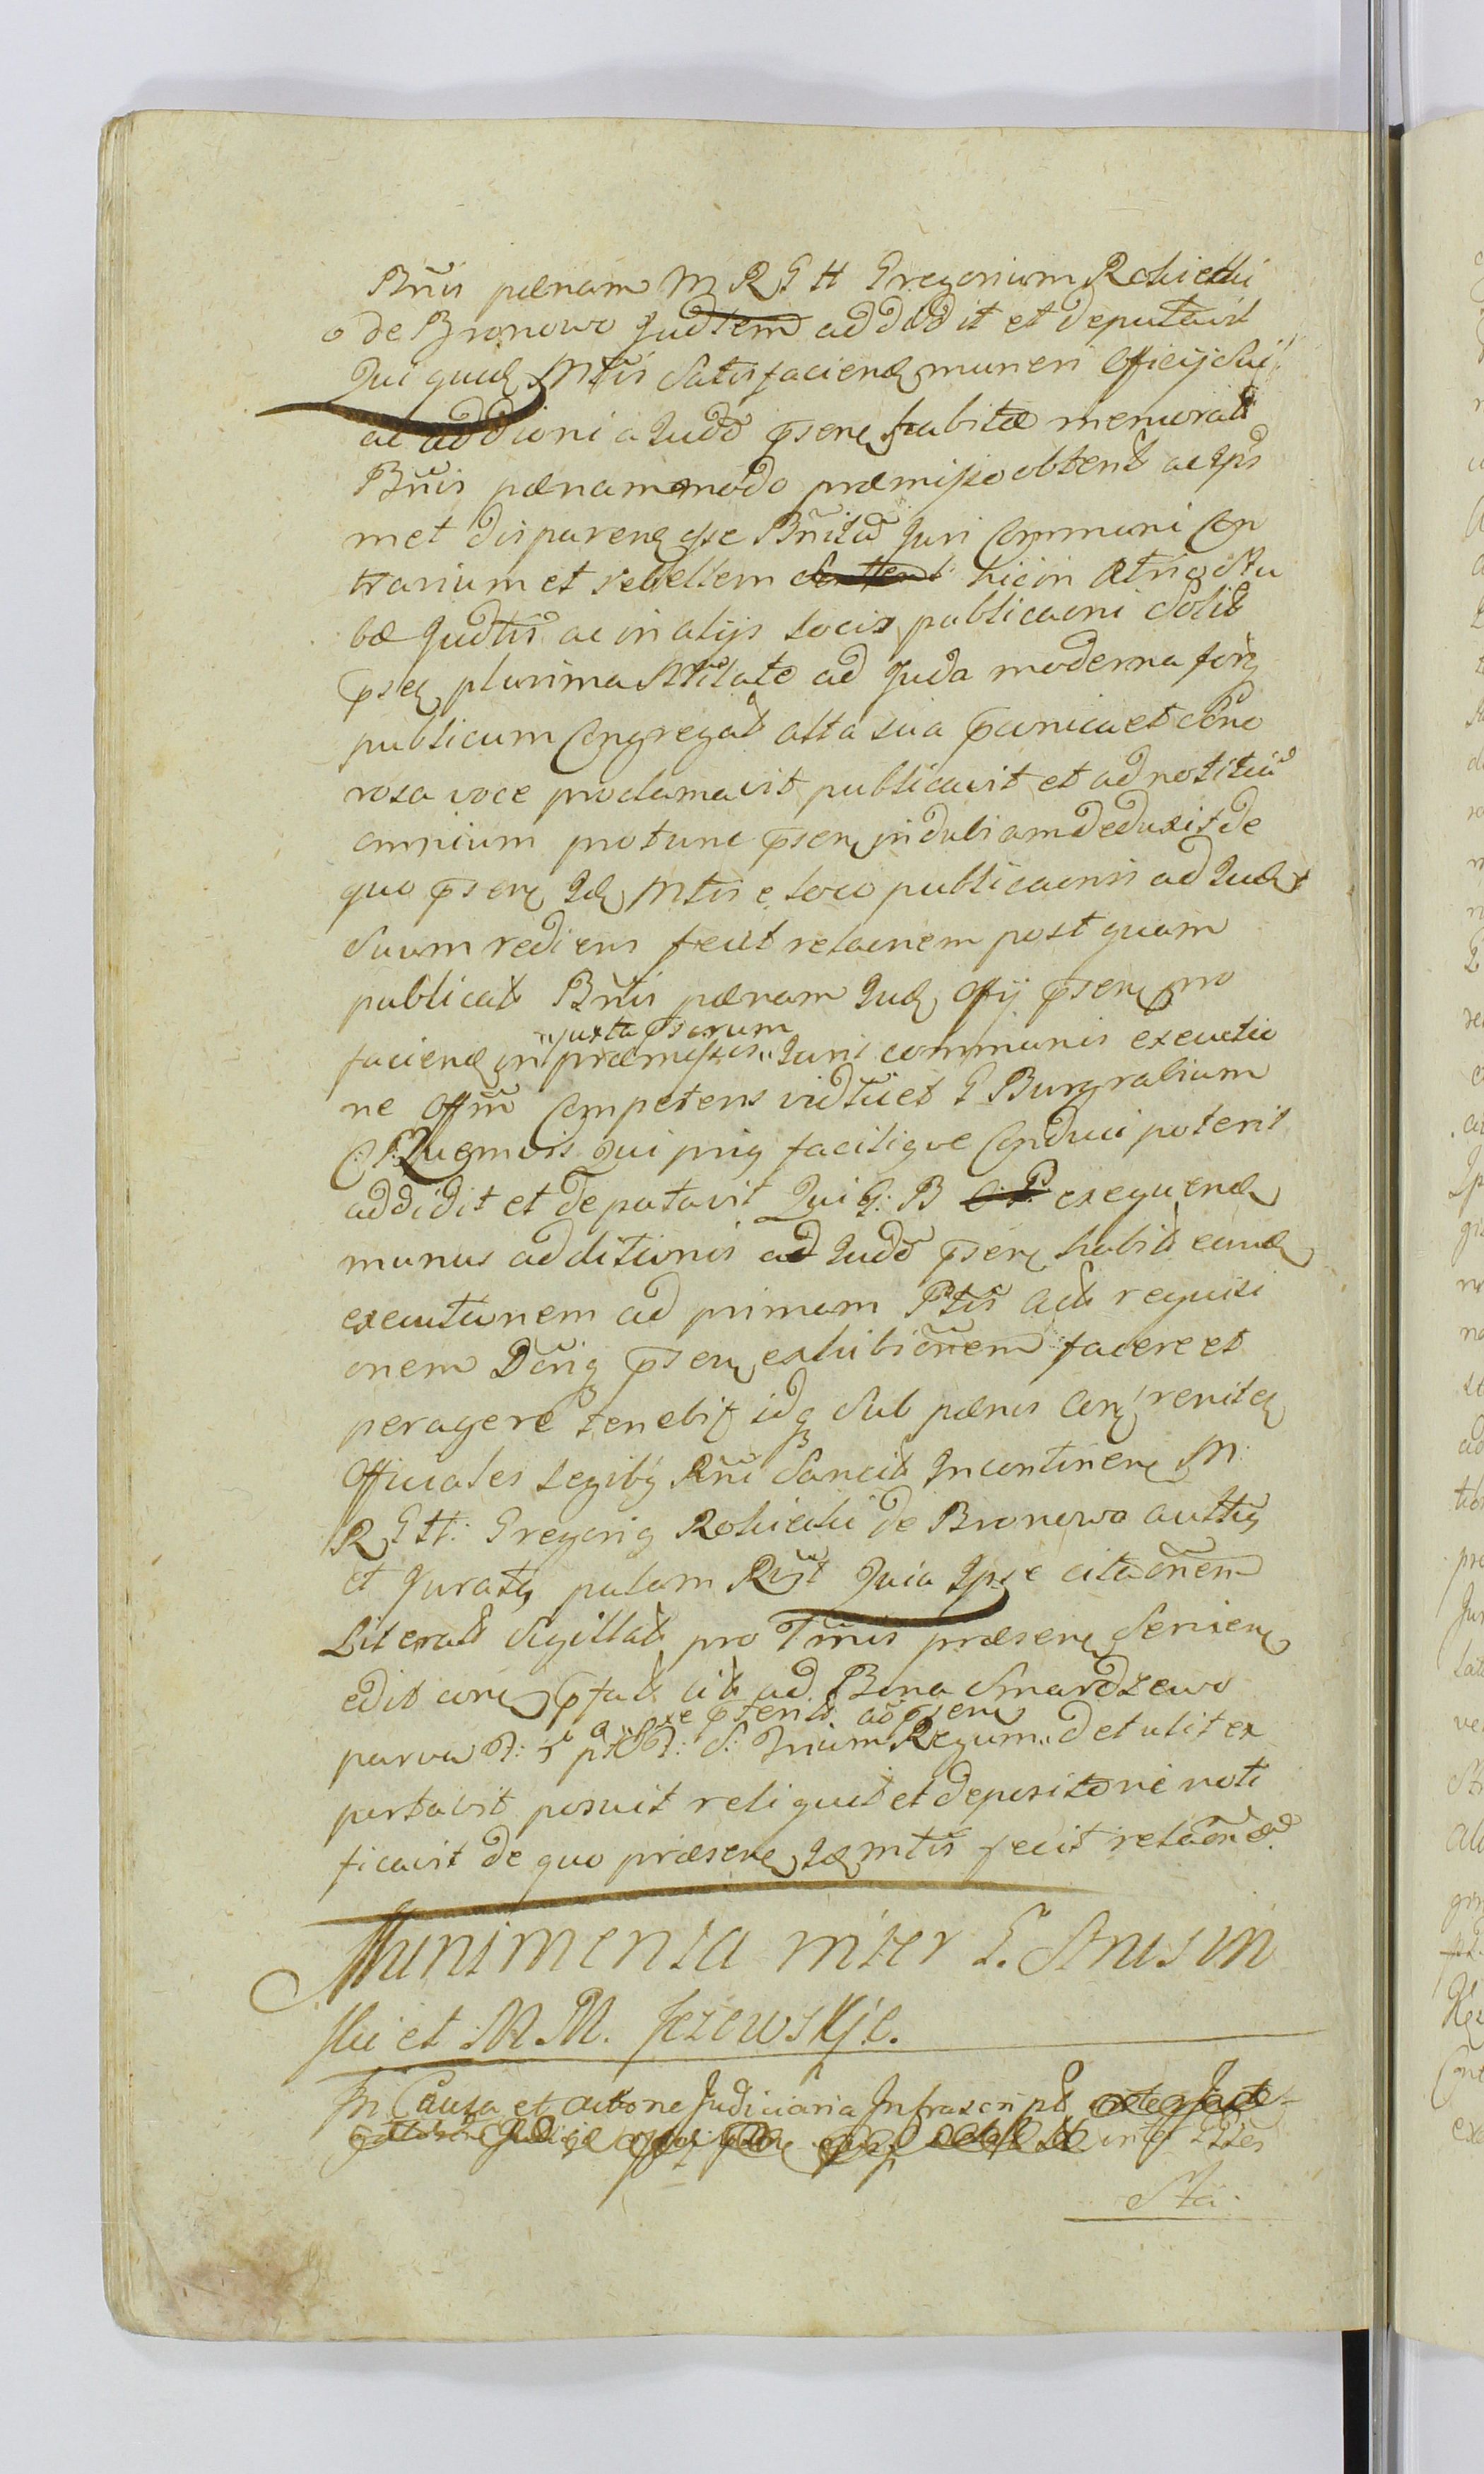 Bñis pænam M R G H Gregorium Rohiecki
de Bronowo Judtem addidit et deputavit
Qui quid Mtris satisfaciend muneri officij sui
ac addioni a Judo psen habitæ memorat
Bñis pænam modo præmisso obtent ac Ips
met disparen esse Bnitum Juri Communi Con
trarium et rebellem hic in Atrio Stu
bæ Judtis ac in alijs locis publicaoni solit
psen plurima Nbilitate ad Juda moderna forq
publicum Congregat alta sua parnica et Sono
rosa voce proclamavit publicavit et ad notitiã
omnium protunc psen indubiam deduxit de
quo psen Id Mtris e loco publicaonis ad Jud
suum rediens fecit relaonem post quam
publicat Bntis pænam Jud Offij psen pro
faciend in præmissis "juxta psarum" Juris communis executio
ne Offm Competens vidlicet G Burgrabium
C: P: Quemvis qui priq faciliqve Conduci poterit
addidit et deputavit Qui G: B exequend
munus additionis ad Judo psen habit eand
executionem ad primam Ptis Act requisi
onem Dõriq psen exhibiõnem facere et
peragere tenebit idq sub pænis Con renitẽ
Officiales Legibq Rñi Sancit Incontinen M:
R G H: Gregoriq Rohiecki de Bronowo autthq
et Juratq palam Rñt Quia Ipse citaõnem
Literat Sigillat pro Tmis præsen Serisen
edit coru pfat cit ad Bona Smardzewo
parva F: 5 a pt F: S: Trium Regum " psterit ad psen " detulit ex
portavit posuit reliquit et depositione noti
ficavit de quo præsen Id mtris fecit relaõnẽ
Munimenta inter G. Smusin
ski et M.M. Jezewskje.
In Causa et actione Judiciaria Infrascript
inter Ptes
Sta: